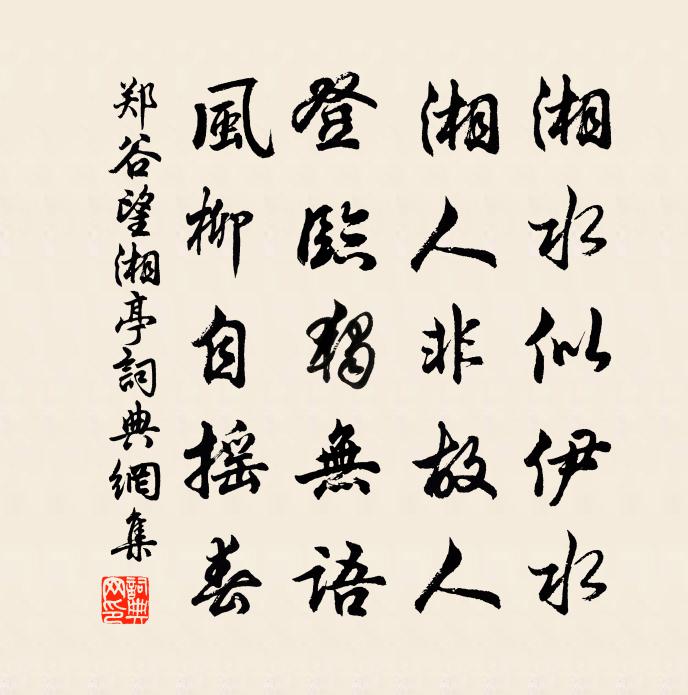 湘水似伊水
湘人非故人
登臨獨無語
風柳自摇春
郑谷望湘亭詞典網集
詞典網印